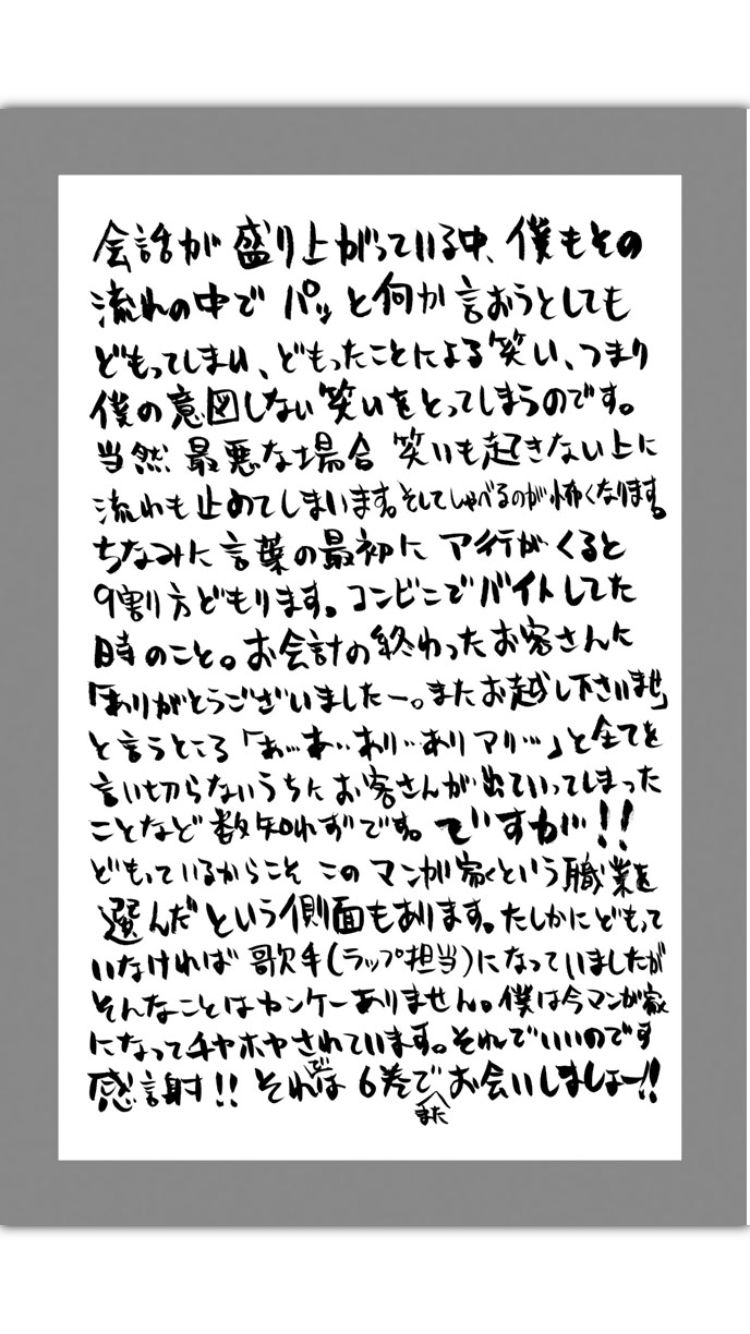 会話が盛り上がっている中、僕もその
流れの中でパッと何か言おうとしても
どもってしまい、どもったことによる笑い、つまり
僕の意図しない笑いをとってしまうのです。
当然 最悪な場合 笑いも起きない上に
流れも止めてしまいます。そしてしゃべるのが怖くなります。
ちなみに言葉の最初にア行がくると
9割り方どもります。コンビニでバイトしてた
時のこと。お会計の終わったお客さんに
「ありがとうございましたー。またお越し下さいませ」
と言うところ「あ…あ…あり…ありアリ…」と全てを
言い切らないうちにお客さんが出ていってしまった
ことなど数知れずです。ですが!!
どもっているからこそこのマンガ家という職業を
選んだという側面もあります。たしかにどもって
いなければ歌手(ラップ担当)になっていましたが
そんなことはカンケーありません。僕は今マンガ家
になってチヤホヤされています。それでいいのです
感謝!! それでは6巻でまたお会いしましょー!!